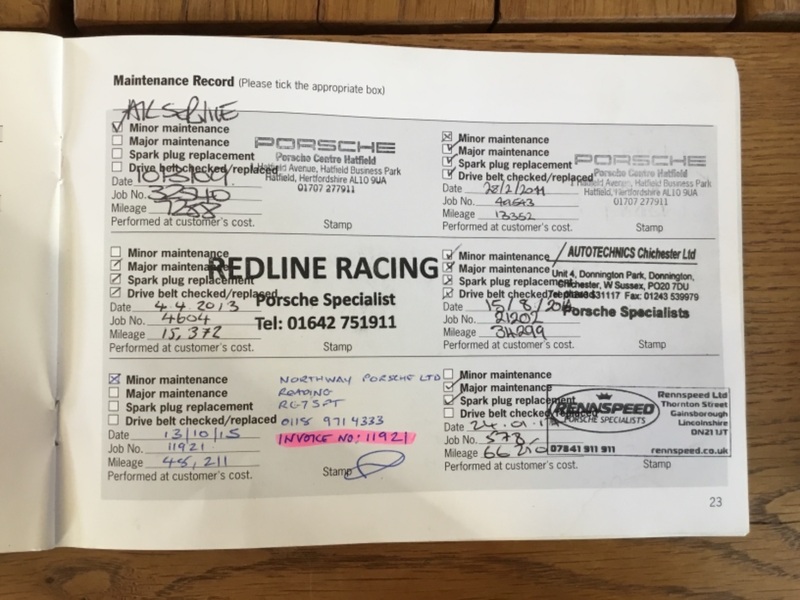 Maintenance Record (Please tick the appropriate box)
Minor maintenance
Major maintenance
Spark plug replacement
Drive belt checked/replaced
Date
Job No.
Mileage
Performed at customer's cost.
PORSCHE
Porsche Centre Hatfield
Hatfield Avenue, Hatfield Business Park
Hatfield, Hertfordshire AL10 9UA
01707 277911
Stamp
Minor maintenance
Major maintenance
Spark plug replacement
Drive belt checked/replaced
Date 28/2/2011
Job No.
Mileage 13352
Performed at customer's cost.
PORSCHE
Porsche Centre Hatfield
Hatfield Avenue, Hatfield Business Park
Hatfield, Hertfordshire AL10 9UA
01707 277911
Stamp
Minor maintenance
Major maintenance
Spark plug replacement
Drive belt checked/replaced
Date 4.4.2013
Job No. 4604
Mileage 15,372
Performed at customer's cost.
REDLINE RACING
Porsche Specialist
Tel: 01642 751911
Stamp
Minor maintenance
Major maintenance
Spark plug replacement
Drive belt checked/replaced
Date 15/8/
Job No. 21202
Mileage
Performed at customer's cost.
AUTOTECHNICS Chichester Ltd
Unit 4, Donnington Park, Donnington,
Chichester, W Sussex, PO20 7DU
Fax: 01243 539979
Porsche Specialists
Stamp
Minor maintenance
Major maintenance
Spark plug replacement
Drive belt checked/replaced
Date 13/10/15
Job No. 11921
Mileage 48,211
Performed at customer's cost.
NORTHWAY PORSCHE LTD
READING
RG7 5PT
0118 971 4333
INVOICE NO: 11921
Stamp
Minor maintenance
Major maintenance
Spark plug replacement
Drive belt checked/replaced
Date
Job No. 578
Mileage
Performed at customer's cost.
RENNSPEED
PORSCHE SPECIALISTS
07841 911 911
Rennspeed Ltd
Thornton Street
Gainsborough
Lincolnshire
DN21 1JT
rennspeed.co.uk
Stamp
23